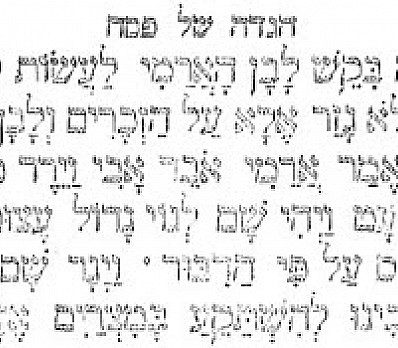 הגדה של פסח
בִּקֵּשׁ לָבָן הָאֲרַמִּי לַעֲשׂוֹת
גָזַר אֶלָּא עַל הַזְּכָרִים וְלָבָן
אֲרַמִּי אֹבֵד אָבִי וַיֵּרֶד
וַיְהִי שָׁם לְגוֹי גָּדוֹל
עַל פִּי הַדִּבּוּר. וַיָּגָר שָׁם
לְהִשְׁתַּקֵּעַ בְּמִצְרַיִם